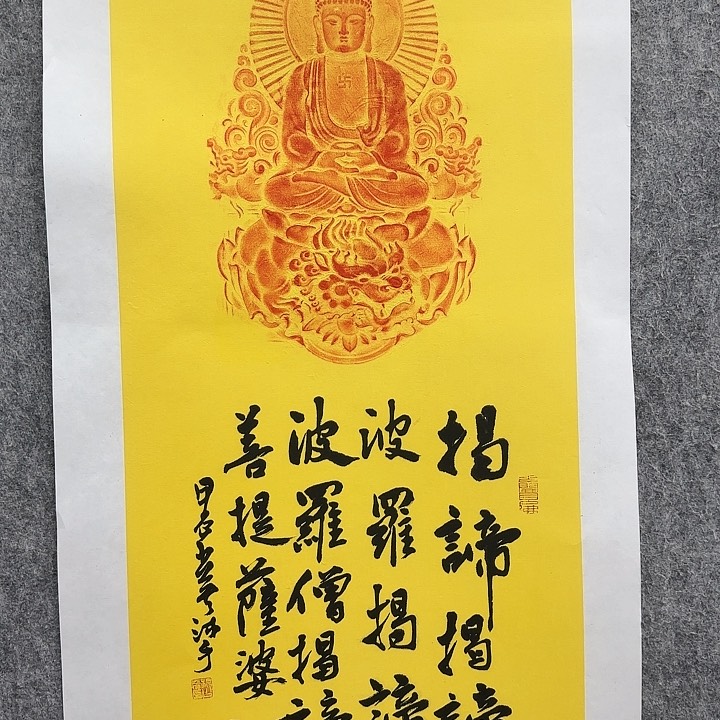 揭諦揭諦
波羅揭諦
波羅僧揭諦
菩提薩婆